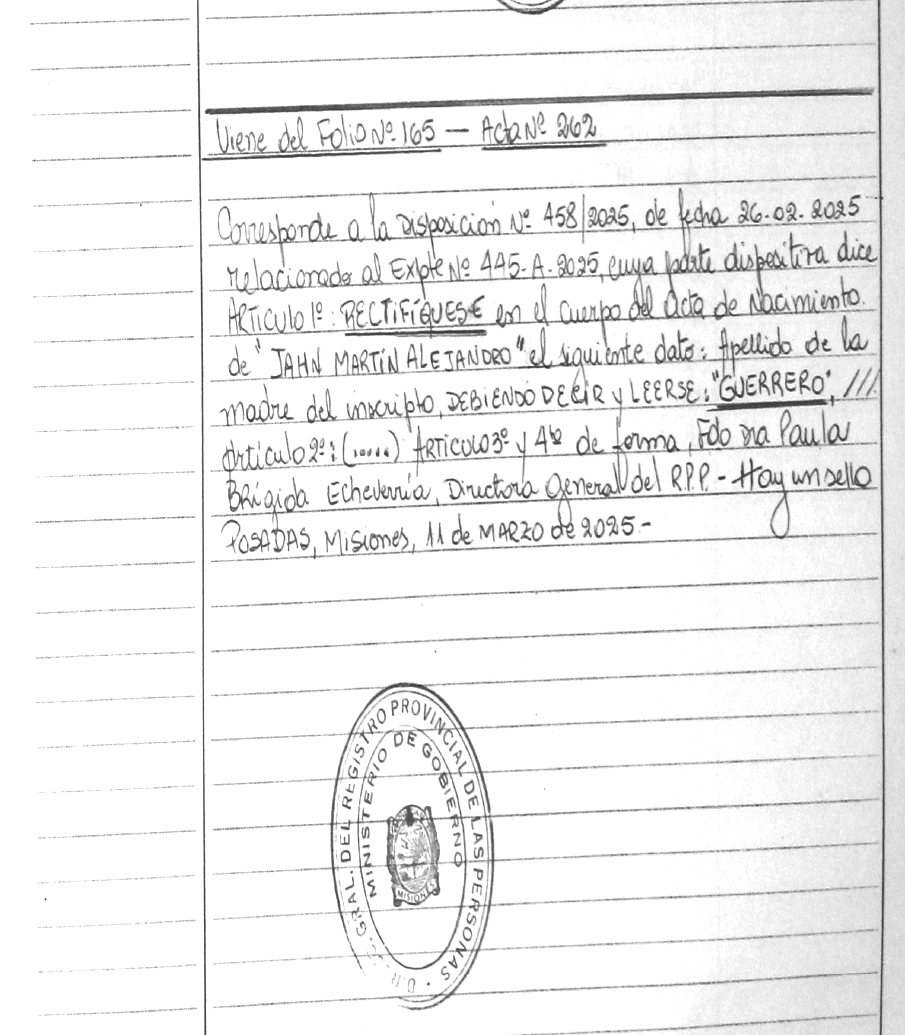 Viene del Folio Nº 165 — Acta Nº 262
Corresponde a la Disposición Nº 458/2025, de fecha 26-02-2025
relacionado al Expte Nº 445-A-2025, cuya parte dispositiva dice
ARTICULO 1º: RECTIFÍQUESE en el cuerpo del Acta de Nacimiento.
de "JAHN MARTÍN ALEJANDRO" el siguiente dato: Apellido de la
madre del inscripto, DEBIENDO DECIR y LEERSE: "GUERRERO", ///
Artículo 2º: (.....) ARTICULO 3º y 4to de forma, Fdo Dra Paula
Brígida Echeverría, Directora General del R.P.P. - Hay un sello
POSADAS, Misiones, 11 de MARZO de 2025.-
GRAL. DEL REGISTRO PROVINCIAL DE LAS PERSONAS
MINISTERIO DE GOBIERNO
MISIONES